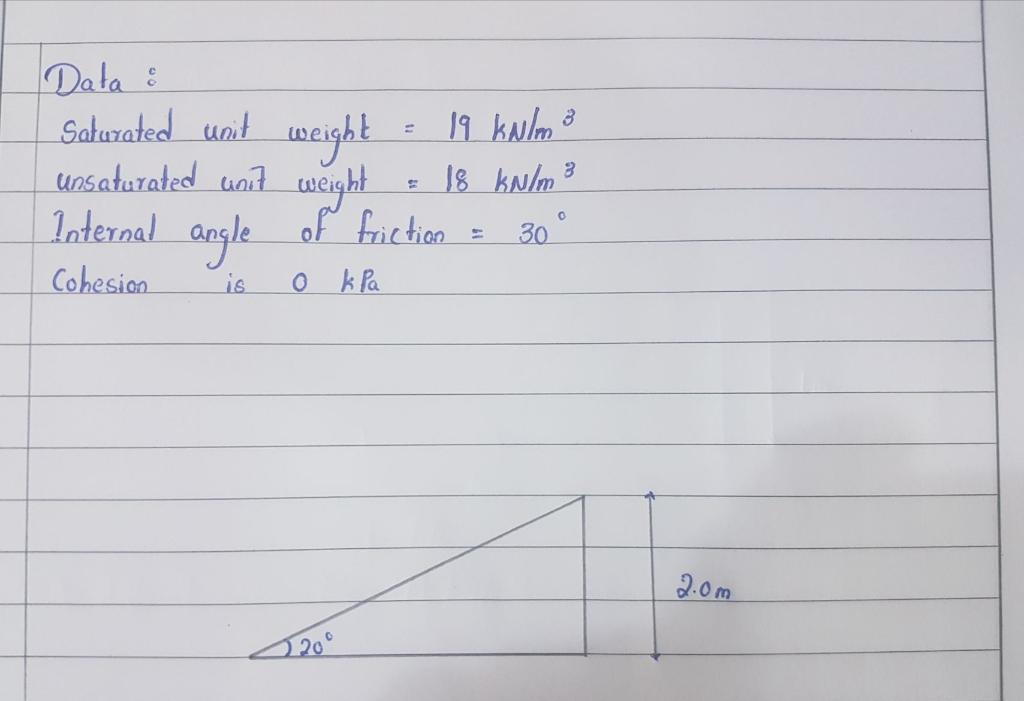 Data :
Saturated unit weight = 19 kN/m³
unsaturated unit weight = 18 kN/m³
Internal angle of friction = 30°
Cohesion is 0 kPa
2.0m
20°